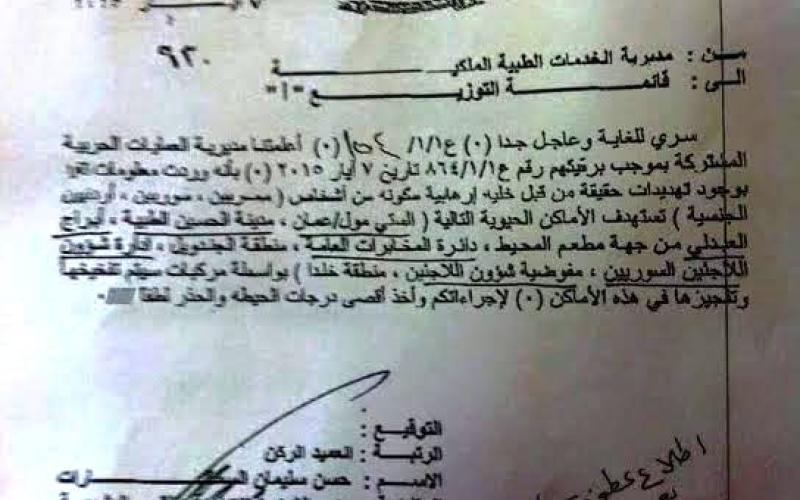 ٩٢٠
مــن : مديرية الخدمات الطبية الملكيـــة
الى : قائمة التوزيـع "أ"
سري للغاية وعاجل جدا (٠) ع/١/١/ (٠) أعلمتنا مديرية العمليات الحربية
المشتركة بموجب برقيتهم رقم ع/١/١/٨٦٤ تاريخ ٧ أيار ٢٠١٥ (٠) بأنه وردت معلومات
بوجود تهديدات حقيقة من قبل خليه إرهابية مكونه من أشخاص ( مصريين ، سوريين ، أردنيين
الجنسية ) تستهدف الأماكن الحيوية التالية ( السيتي مول/عمان ، مدينة الحسين الطبية ، أبراج
العبدلي من جهة مطعم المحيط ، دائرة المخابرات العامة ، منطقة الجندويل ، إدارة شؤون
اللاجئين السوريين ، مفوضية شؤون اللاجئين ، منطقة خلدا ) بواسطة مركبات سيتم تفخيخها
وتفجيرها في هذه الأماكن (٠) لإجراءاتكم وأخذ أقصى درجات الحيطه والحذر لطفا
التوقيع :
الرتبة : العميد الركن
الاسم : حسن سليمان
اطلاع